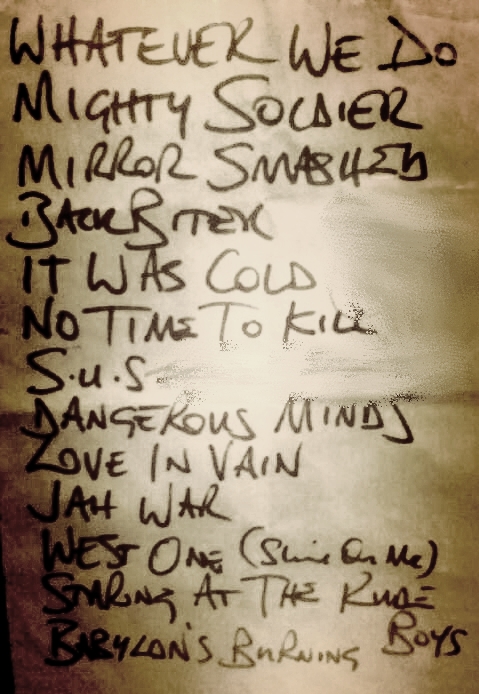 WHATEVER WE DO
MIGHTY SOLDIER
MIRROR SMASHED
BACK BITER
IT WAS COLD
NO TIME TO KILL
S.U.S.
DANGEROUS MINDS
LOVE IN VAIN
JAH WAR
WEST ONE (Shine On Me)
STARING AT THE RUDE
BABYLON'S BURNING BOYS